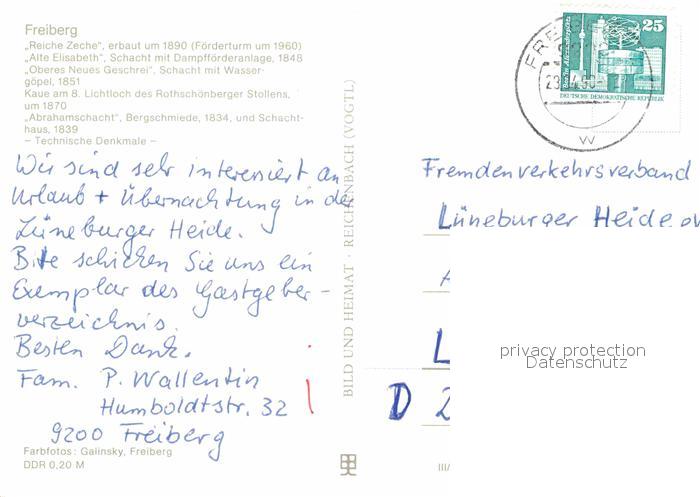 Freiberg
„Reiche Zeche“, erbaut um 1890 (Förderturm um 1960)
„Alte Elisabeth“, Schacht mit Dampfförderanlage, 1848
„Oberes Neues Geschrei“, Schacht mit Wasser-
göpel, 1851
Kaue am 8. Lichtloch des Rothschönberger Stollens,
um 1870
„Abrahamschacht“, Bergschmiede, 1834, und Schacht-
haus, 1839
– Technische Denkmale –
Wir sind sehr interessiert an
Urlaub + Übernachtung in der
Lüneburger Heide.
Bitte schicken Sie uns ein
Exemplar des Gastgeber-
verzeichnis.
Besten Dank.
Fam. P. Wallentin
Humboldtstr. 32
9200 Freiberg
Farbfotos: Galinsky, Freiberg
DDR 0,20 M
BILD UND HEIMAT · REICHENBACH (VOGTL)
25
Berlin, Alexanderplatz
DEUTSCHE DEMOKRATISCHE REPUBLIK
Fremdenverkehrsverband
Lüneburger Heide
L
D 2
privacy protection
Datenschutz
III/